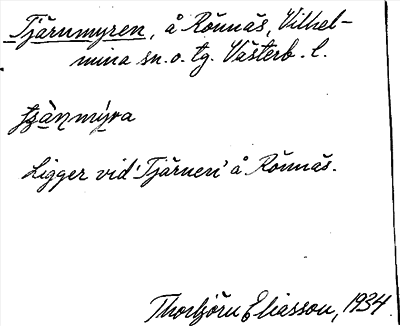 Tjärnmyren, å Rönnäs, Vilhel-
mina sn. o. tg. Västerb. l.
Ligger vid 'Tjärnen' å Rönnäs.
Thorbjörn Eliasson, 1934